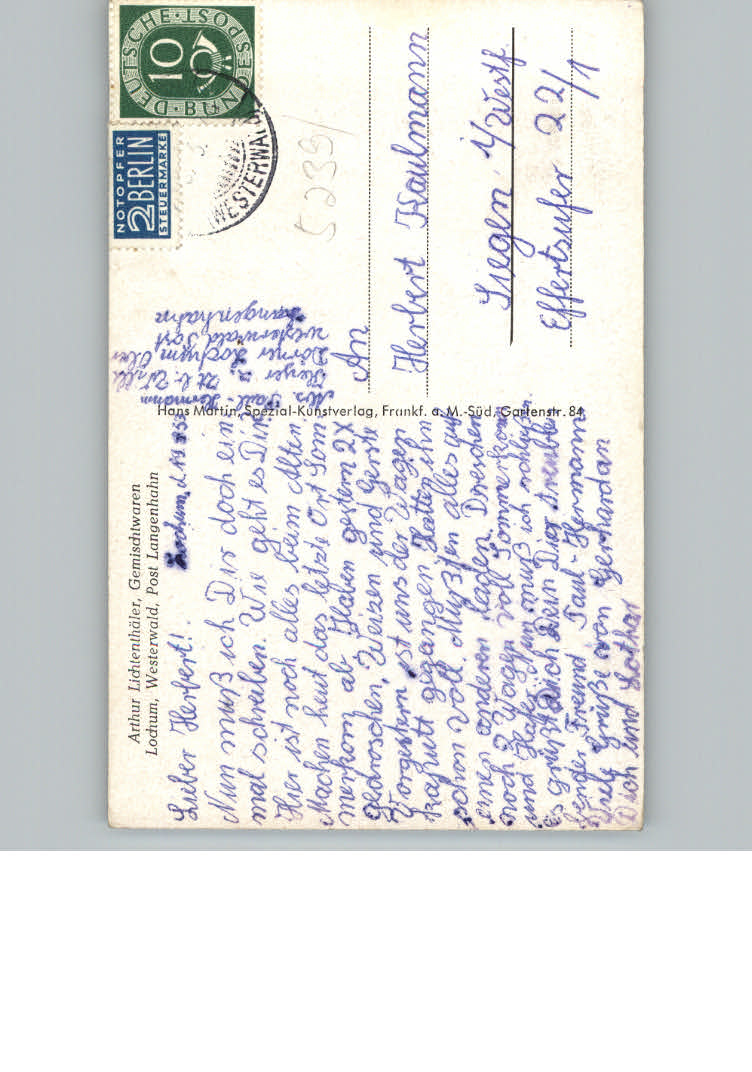 Arthur Lichtenthäler, Gemischtwaren
Lochum, Westerwald, Post Langenhahn
Lochum, d.
Lieber Herbert!
Nun muß ich Dir doch ein
mal schreiben. Wie geht es Dir
Hier ist noch alles beim Alten.
Machen heut das letzte Ort Som
merkorn ab. Haben gestern 2X
gedroschen, Weizen und Gerste
Vorgestern ist uns der Wagen
kaputt gegangen. Hatten ihn
schon voll. Mußten alles auf
einen anderen laden. Dreschen
noch 2 Wagen voll Sommerkorn
und Hafer. Nun muß ich schließen
es grüßt Dich Dein Dir
Freund Paul-Hermann
Viele Grüße von Gerhardan
Dich und Lothar
Hans Martin, Spezial-Kunstverlag, Frankf. a. M.-Süd, Gartenstr. 84
Abs. Paul-Hermann
z. Zt. b. Willi
Dörner Lochum Ober
westerwald Post
Langenhahn
DEUTSCHE POST
10
NOTOPFER
2 BERLIN
STEUERMARKE
WESTERWALD
5239
An
Herbert Kaulmann
Siegen i/Westf
Effertsufer 22/1